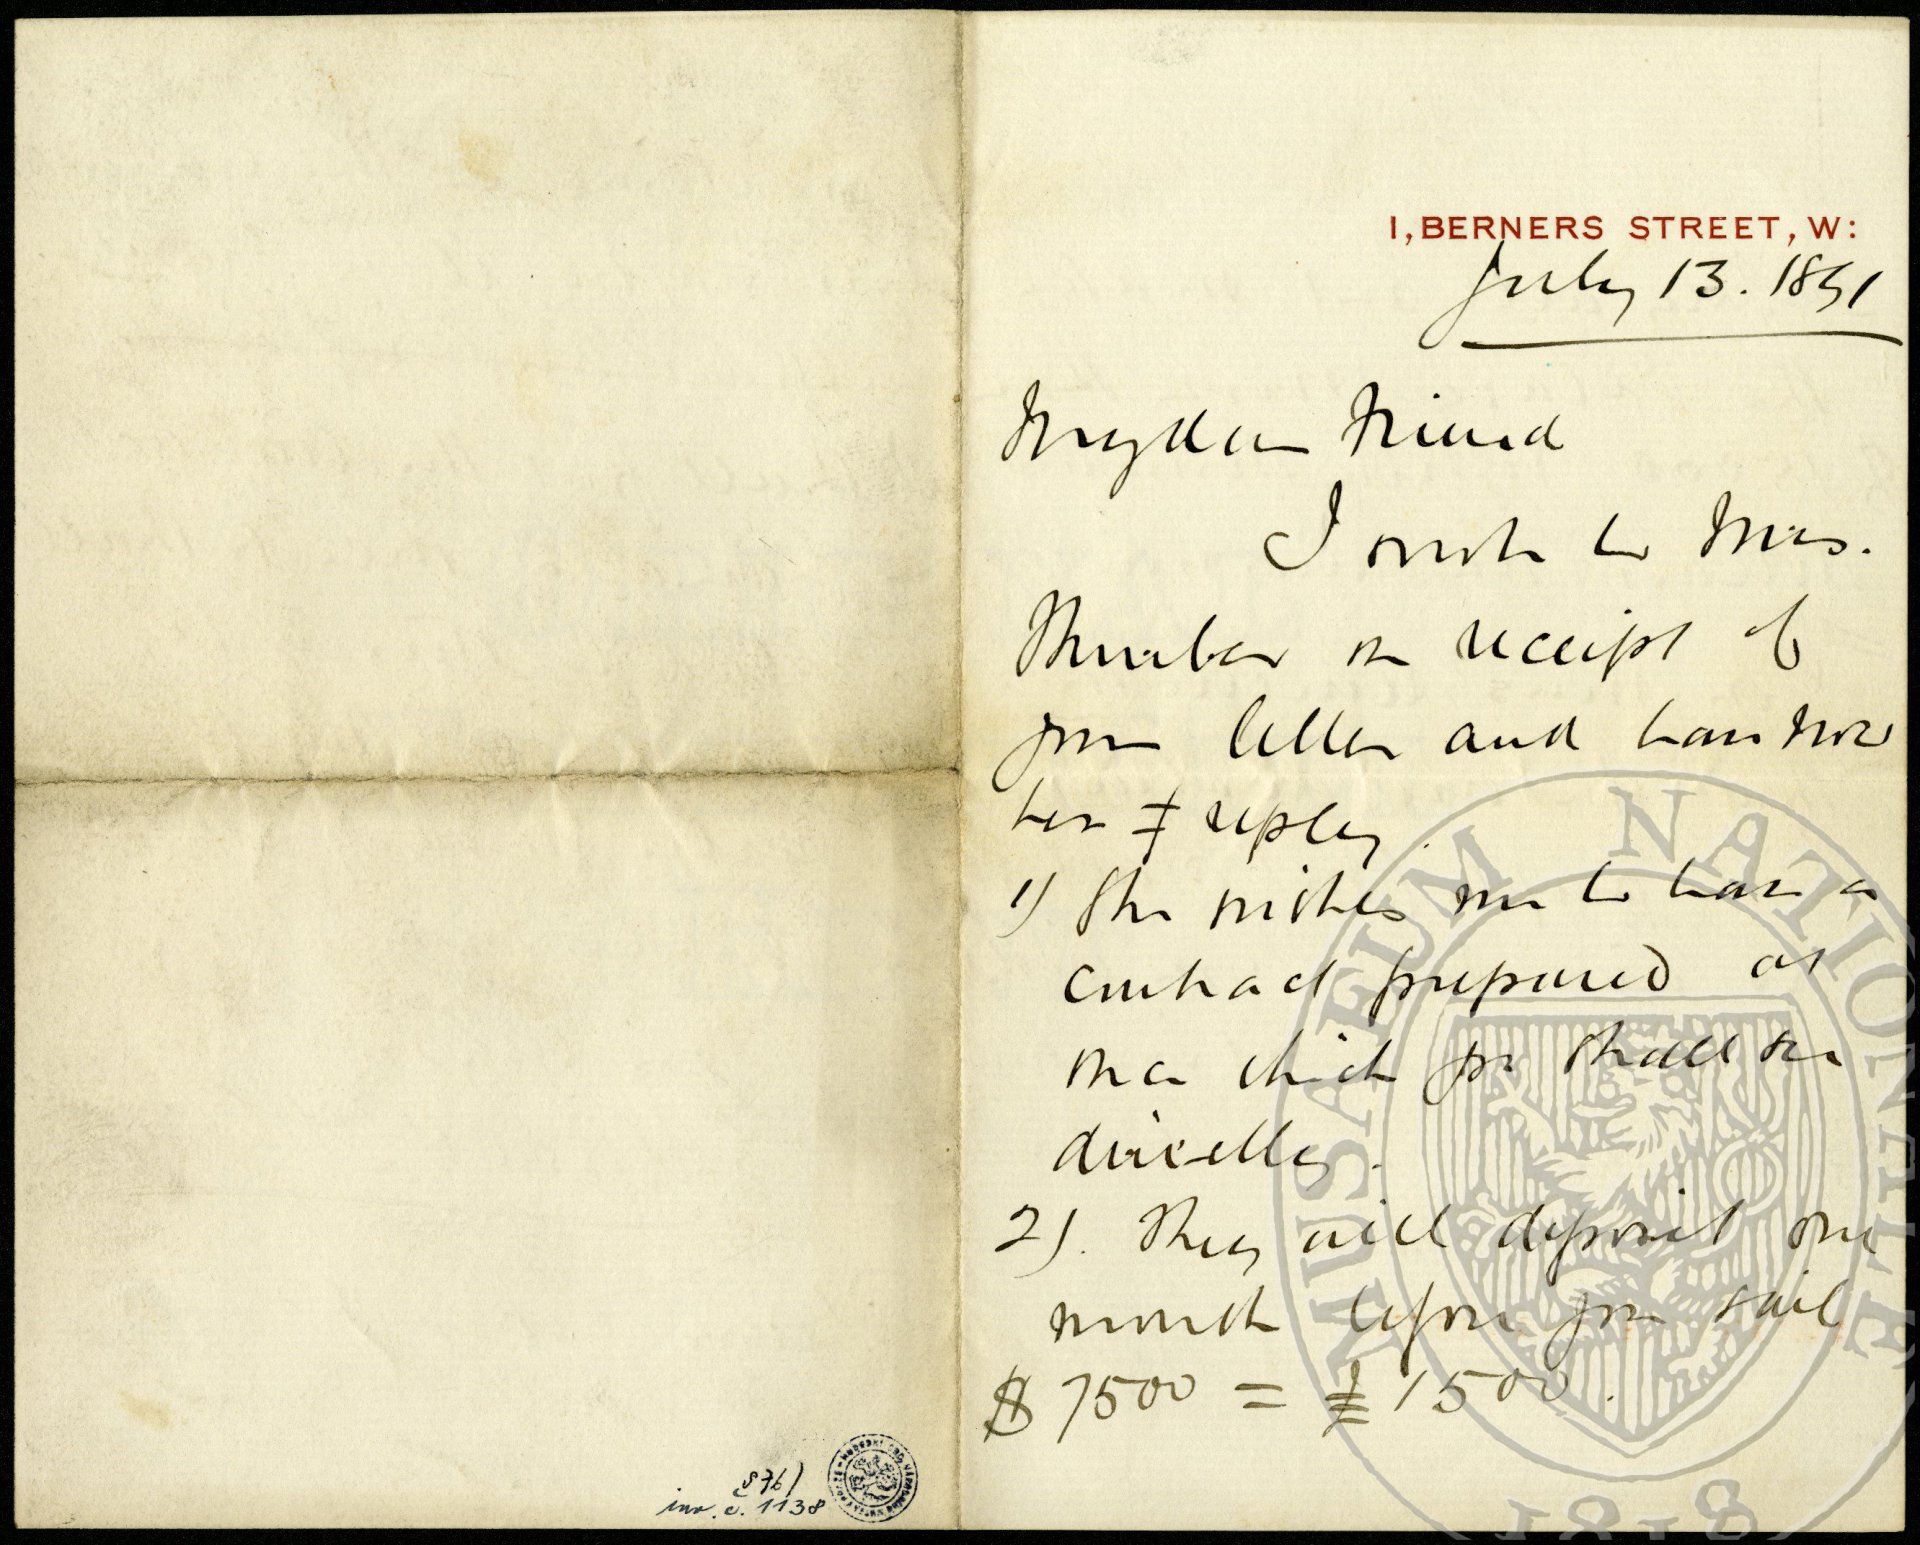 1, BERNERS STREET, W:
July 13. 1891
My dear Friend
I wrote to Mrs.
Thurber on receipt of
your letter and have now
her reply.
1) She wishes me to have a
contract prepared at
once which you shall see
directly.
2). They will deposit one
month before you sail
$ 7500 = £ 1500.
S 76/
inv. č. 1138
MUSAEUM NATIONALE
1818